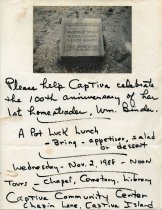 Please help Captiva celebrate
the 100th anniversary of her
1st homesteader, Wm. Binder.
A Pot Luck Lunch
- Bring - appetiser, salad
or dessert
Wednesday - Nov. 2, 1988 - Noon
Tours - Chapel, Cemetary, Library
Captiva Community Center
Chapin Lane, Captiva Island